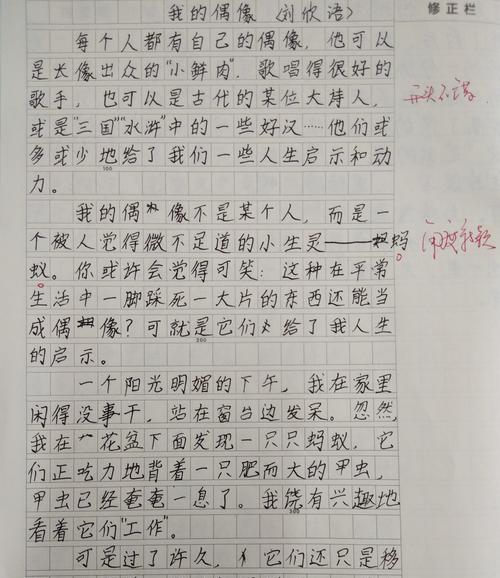 我的偶像（刘欣语）
修正栏
每个人都有自己的偶像，他可以
是长像出众的“小鲜肉”，歌唱得很好的
歌手，也可以是古代的某位大诗人，
或是“三国”“水浒”中的一些好汉……他们或
多或少地给了我们一些人生启示和动
100
力。
我的偶像不是某个人，而是一
个被人觉得微不足道的小生灵——蚂
蚁。你或许会觉得可笑：这种在平常
生活中一脚踩死一大片的东西还能当
成偶像？可就是它们给了我人生
200
的启示。
一个阳光明媚的下午，我在家里
闲得没事干，站在窗台边发呆。忽然，
我在花盆下面发现一只只蚂蚁，它
们正吃力地背着一只肥而大的甲虫，
甲虫已经奄奄一息了。我饶有兴趣地
300
看着它们“工作”。
可是过了许久，它们还只是移